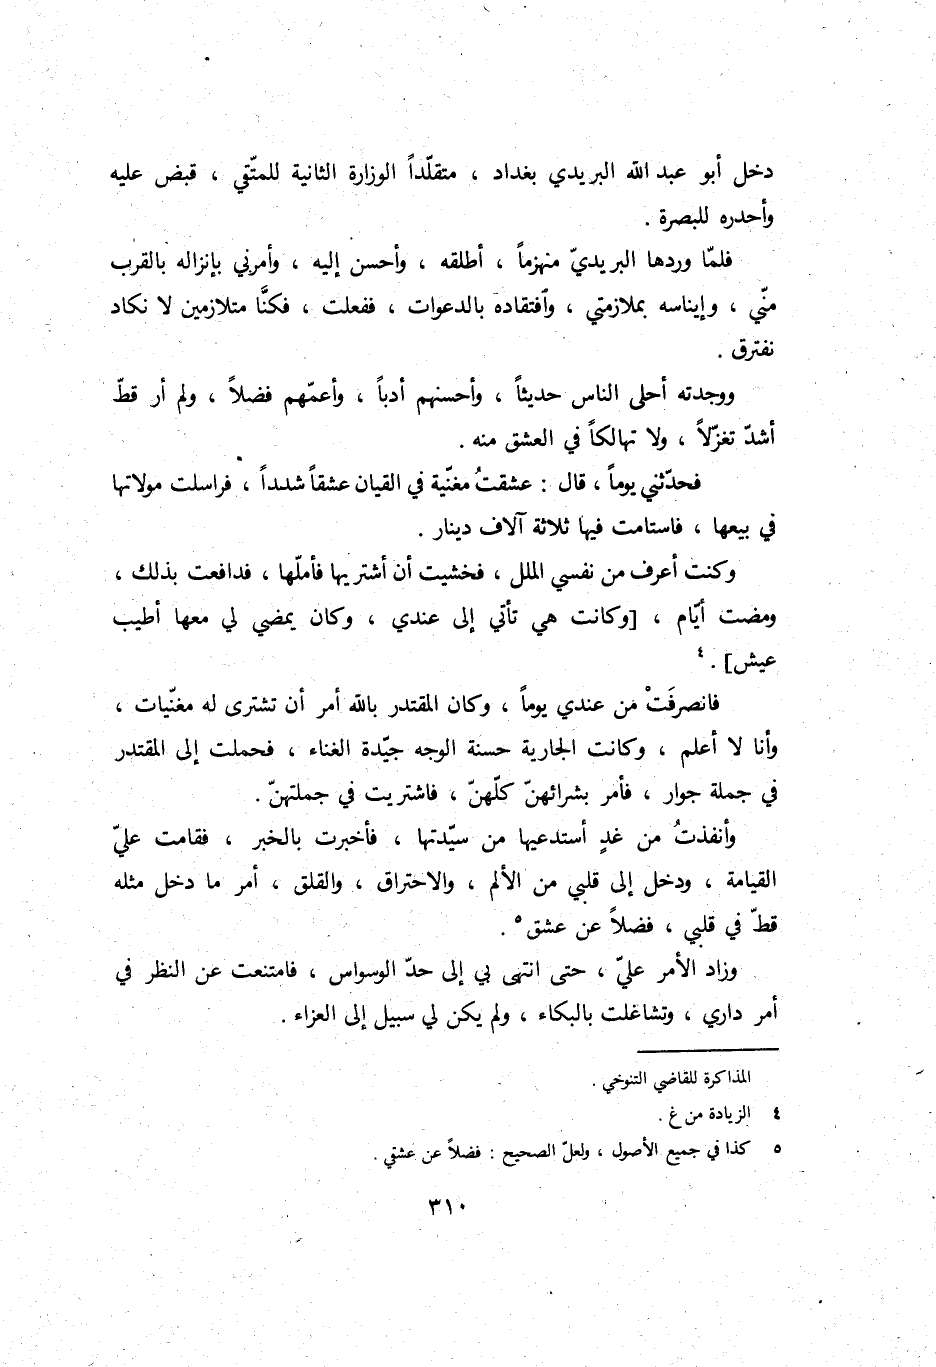 دخل أبو عبد الله البريدي بغداد ، متقلّداً الوزارة الثانية للمتّقي ، قبض عليه
وأحدره للبصرة .
فلمّا وردها البريديّ منهزماً ، أطلقه ، وأحسن إليه ، وأمرني بإنزاله بالقرب
منّي ، وإيناسه بملازمتي ، وٱفتقاده بالدعوات ، ففعلت ، فكنَّا متلازمين لا نكاد
نفترق .
ووجدته أحلى الناس حديثاً ، وأحسنهم أدباً ، وأعمّهم فضلاً ، ولم أر قطّ
أشدّ تغزّلاً ، ولا تهالكاً في العشق منه .
فحدّثني يوماً ، قال : عشقتُ مغنّية في القيان عشقاً شديداً ، فراسلت مولاتها
في بيعها ، فاستامت فيها ثلاثة آلاف دينار .
وكنت أعرف من نفسي الملل ، فخشيت أن أشتريها فأملّها ، فدافعت بذلك ،
ومضت أيّام ، [وكانت هي تأتي إلى عندي ، وكان يمضي لي معها أطيب
عيش] ٤.
فانصرفَتْ من عندي يوماً ، وكان المقتدر بالله أمر أن تشترى له مغنّيات ،
وأنا لا أعلم ، وكانت الجارية حسنة الوجه جيّدة الغناء ، فحملت إلى المقتدر
في جملة جوار ، فأمر بشرائهنّ كلّهنّ ، فاشتريت في جملتهنّ .
وأنفذتُ من غدٍ أستدعيها من سيّدتها ، فأخبرت بالخبر ، فقامت عليّ
القيامة ، ودخل إلى قلبي من الألم ، والاحتراق ، والقلق ، أمر ما دخل مثله
قطّ في قلبي ، فضلاً عن عشق ٥ .
وزاد الأمر عليّ ، حتى انتهى بي إلى حدّ الوسواس ، فامتنعت عن النظر في
أمر داري ، وتشاغلت بالبكاء ، ولم يكن لي سبيل إلى العزاء .
المذاكرة للقاضي التنوخي .
٤ الزيادة من غ .
٥ كذا في جميع الأصول ، ولعلّ الصحيح : فضلاً عن عشقي .
٣١٠